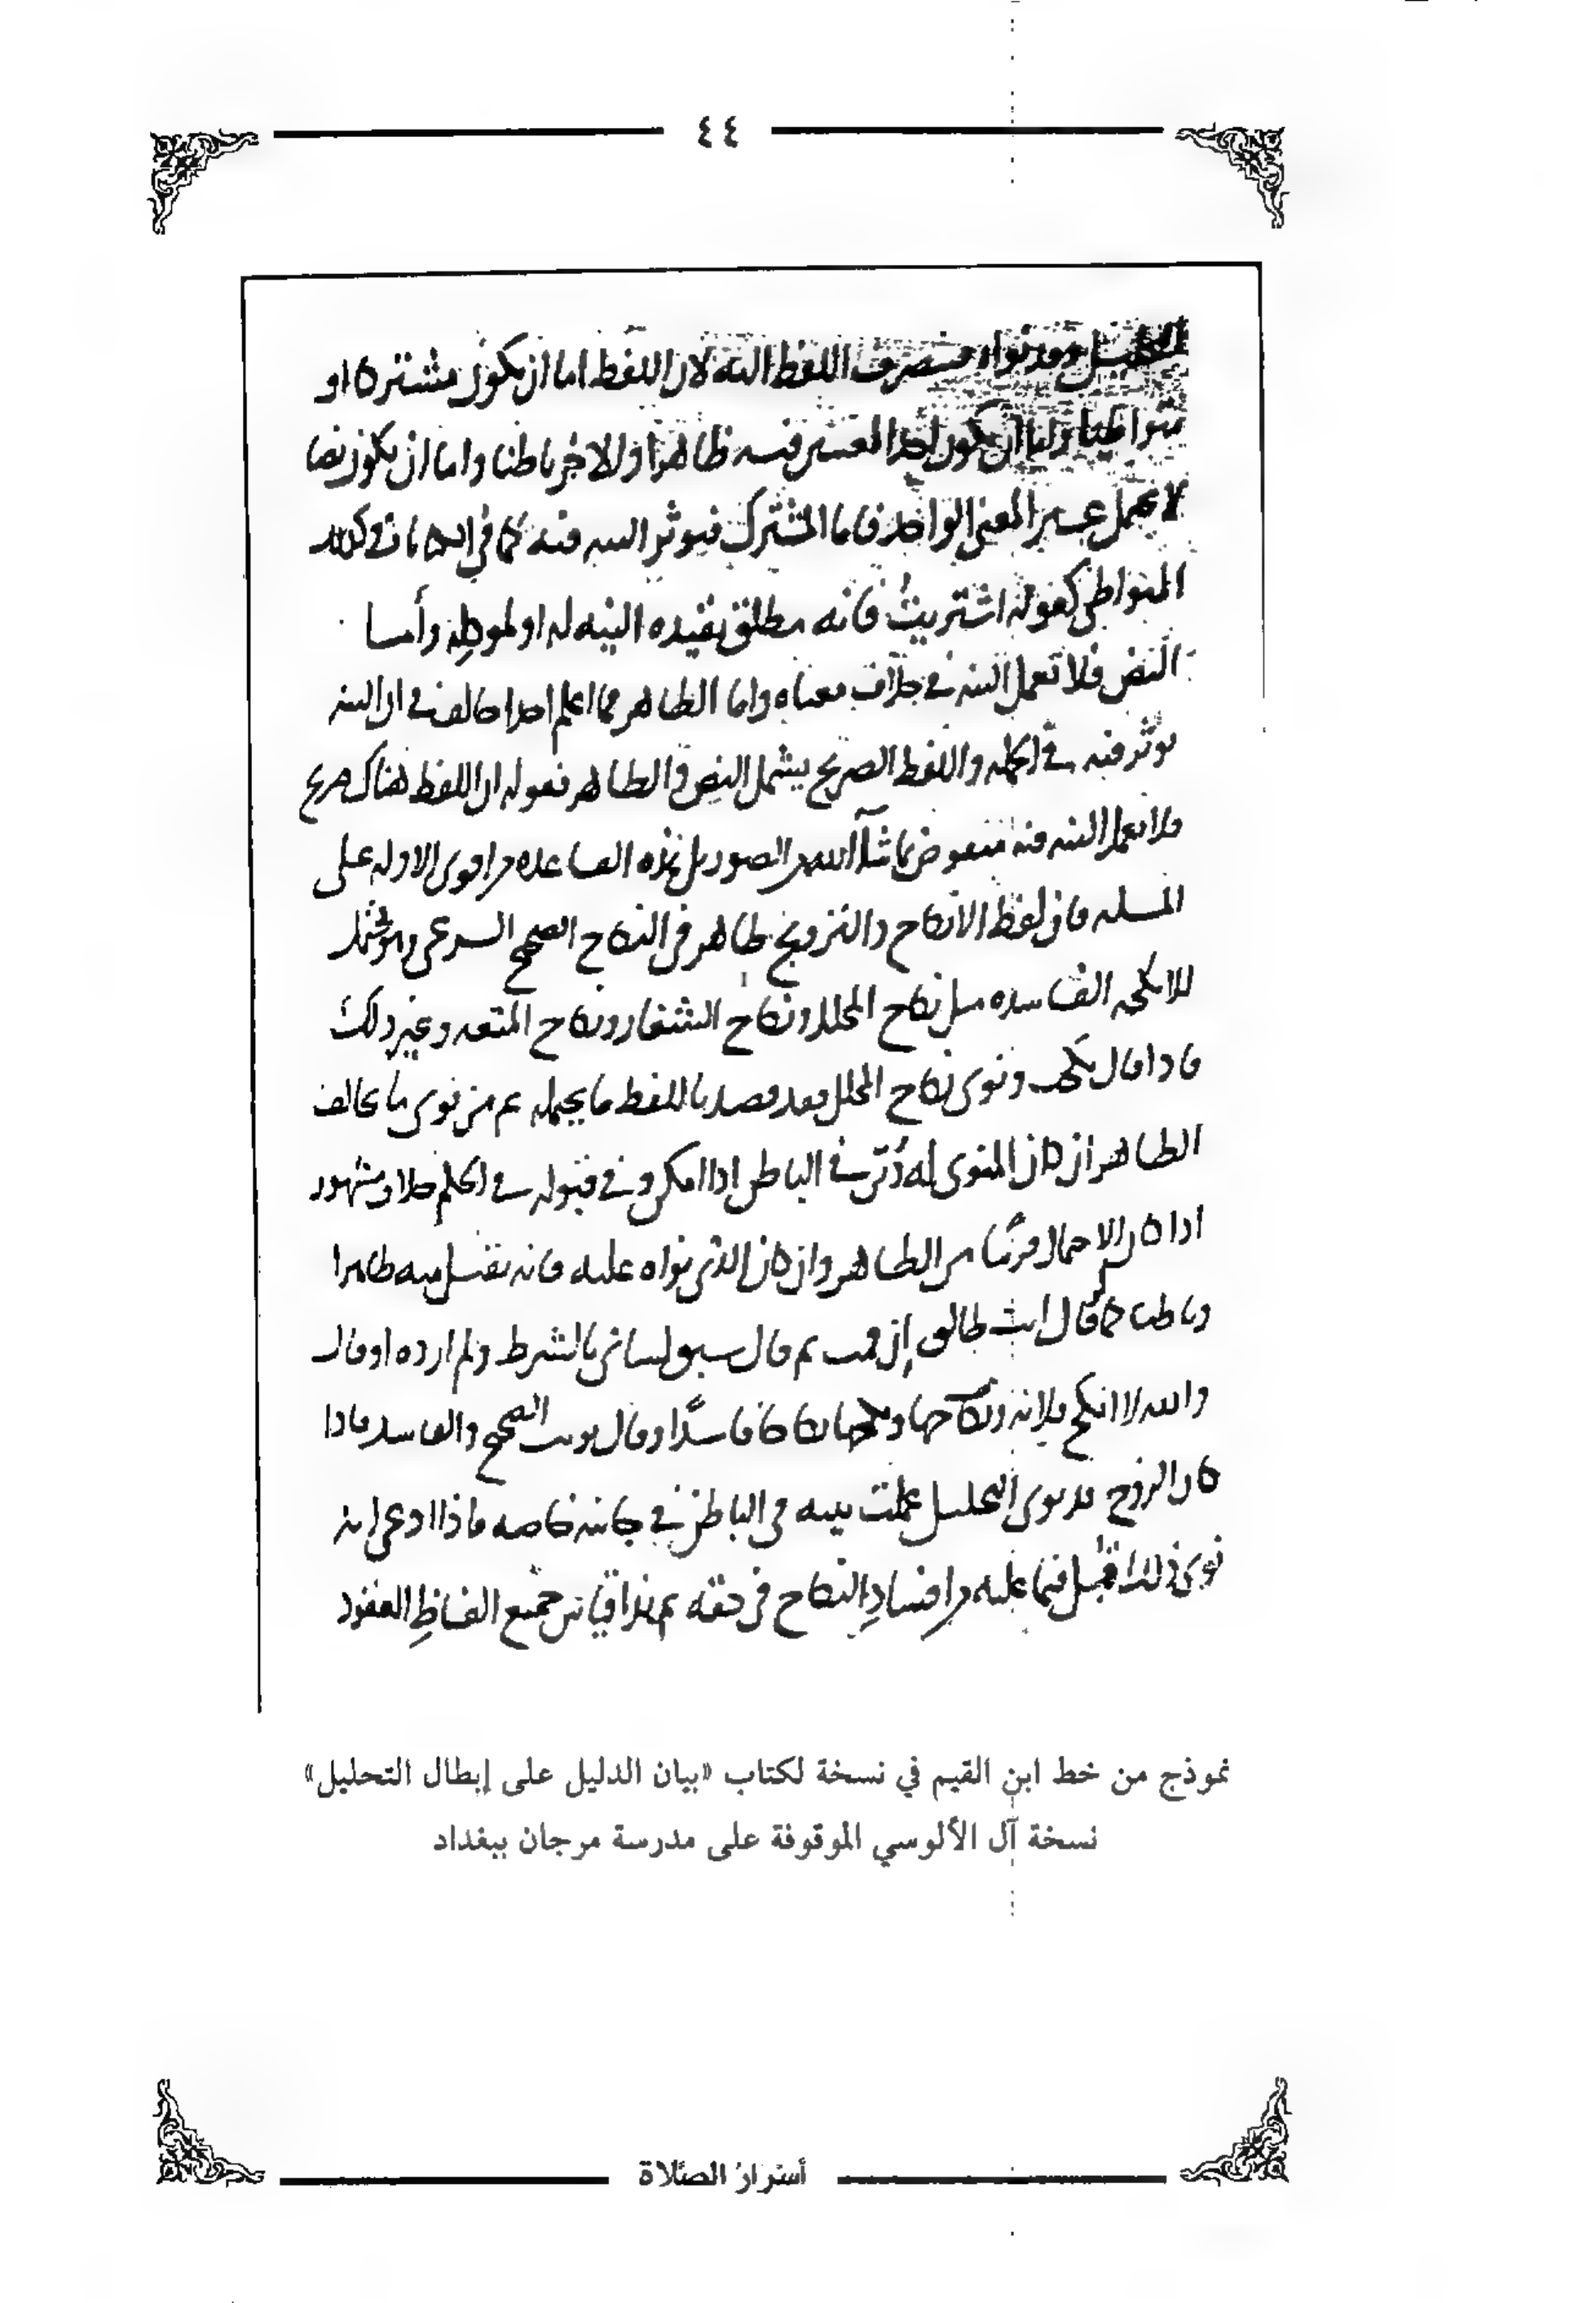 ٤٤
فينصرف اللفظ اليه لان اللفظ اما ان يكون مشتركا او
متواطيا واما ان يكون احد المعنيين فيه ظاهرا وللاخر باطنا واما ان يكون نصا
لا يحتمل غير المعنى الواحد فاما المشترك فيوثر النيه فيه كما في الكنايات وكذلك
المتواطى كقوله اشتريت فانه مطلق بقيده النيه له او لموكله وأما
النص فلا تعمل النيه في خلاف معناه واما الظاهر فما اعلم احدا خالف في ان النيه
يوثر فيه في الجمله واللفظ الصريح يشمل النص والظاهر فقوله ان اللفظ هناك صريح
فلا تعمل النيه فيه منقوض بما شا الله من الصور بل هذه القاعده من اقوى الادله على
المسله فان لفظ الانكاح والتزويج ظاهر في النكاح الصحيح الشرعي وهو محتمل
للانكحه الفاسده مثل نكاح المحلل ونكاح الشغار ونكاح المتعه وغير ذلك
فاذا قال نكحت ونوى نكاح المحلل فقد قصد باللفظ ما يحتمله ثم من نوى ما يخالف
الظاهر ان كان المنوى له دُيّن في الباطن اذا امكن وفي قبوله في الحكم خلاف مشهور
اذا كان الاحتمال قريبا من الظاهر وان كان الذى نواه عليه فانه يقبل منه ظاهرا
وباطنا كما لو قال انت طالق إن قمت ثم قال سبق لسانى بالشرط ولم ارده او قال
والله لا انكح فلانه ونكاحها ونكحها نكاحا فاسدًا وقال نويت الصحيح والفاسد فاذا
كان الزوج قد نوى التحليل عملت نيته في الباطن في جانبه خاصه فاذا ادعى انه
نوى ذلك قُبل فيما عليه من افسادِ النكاح في حقه ثم هذا قياس جميع الفاظِ العقود
نموذج من خط ابن القيم في نسخة لكتاب «بيان الدليل على إبطال التحليل»
نسخة آل الألوسي الموقوفة على مدرسة مرجان ببغداد
أسرار الصلاة